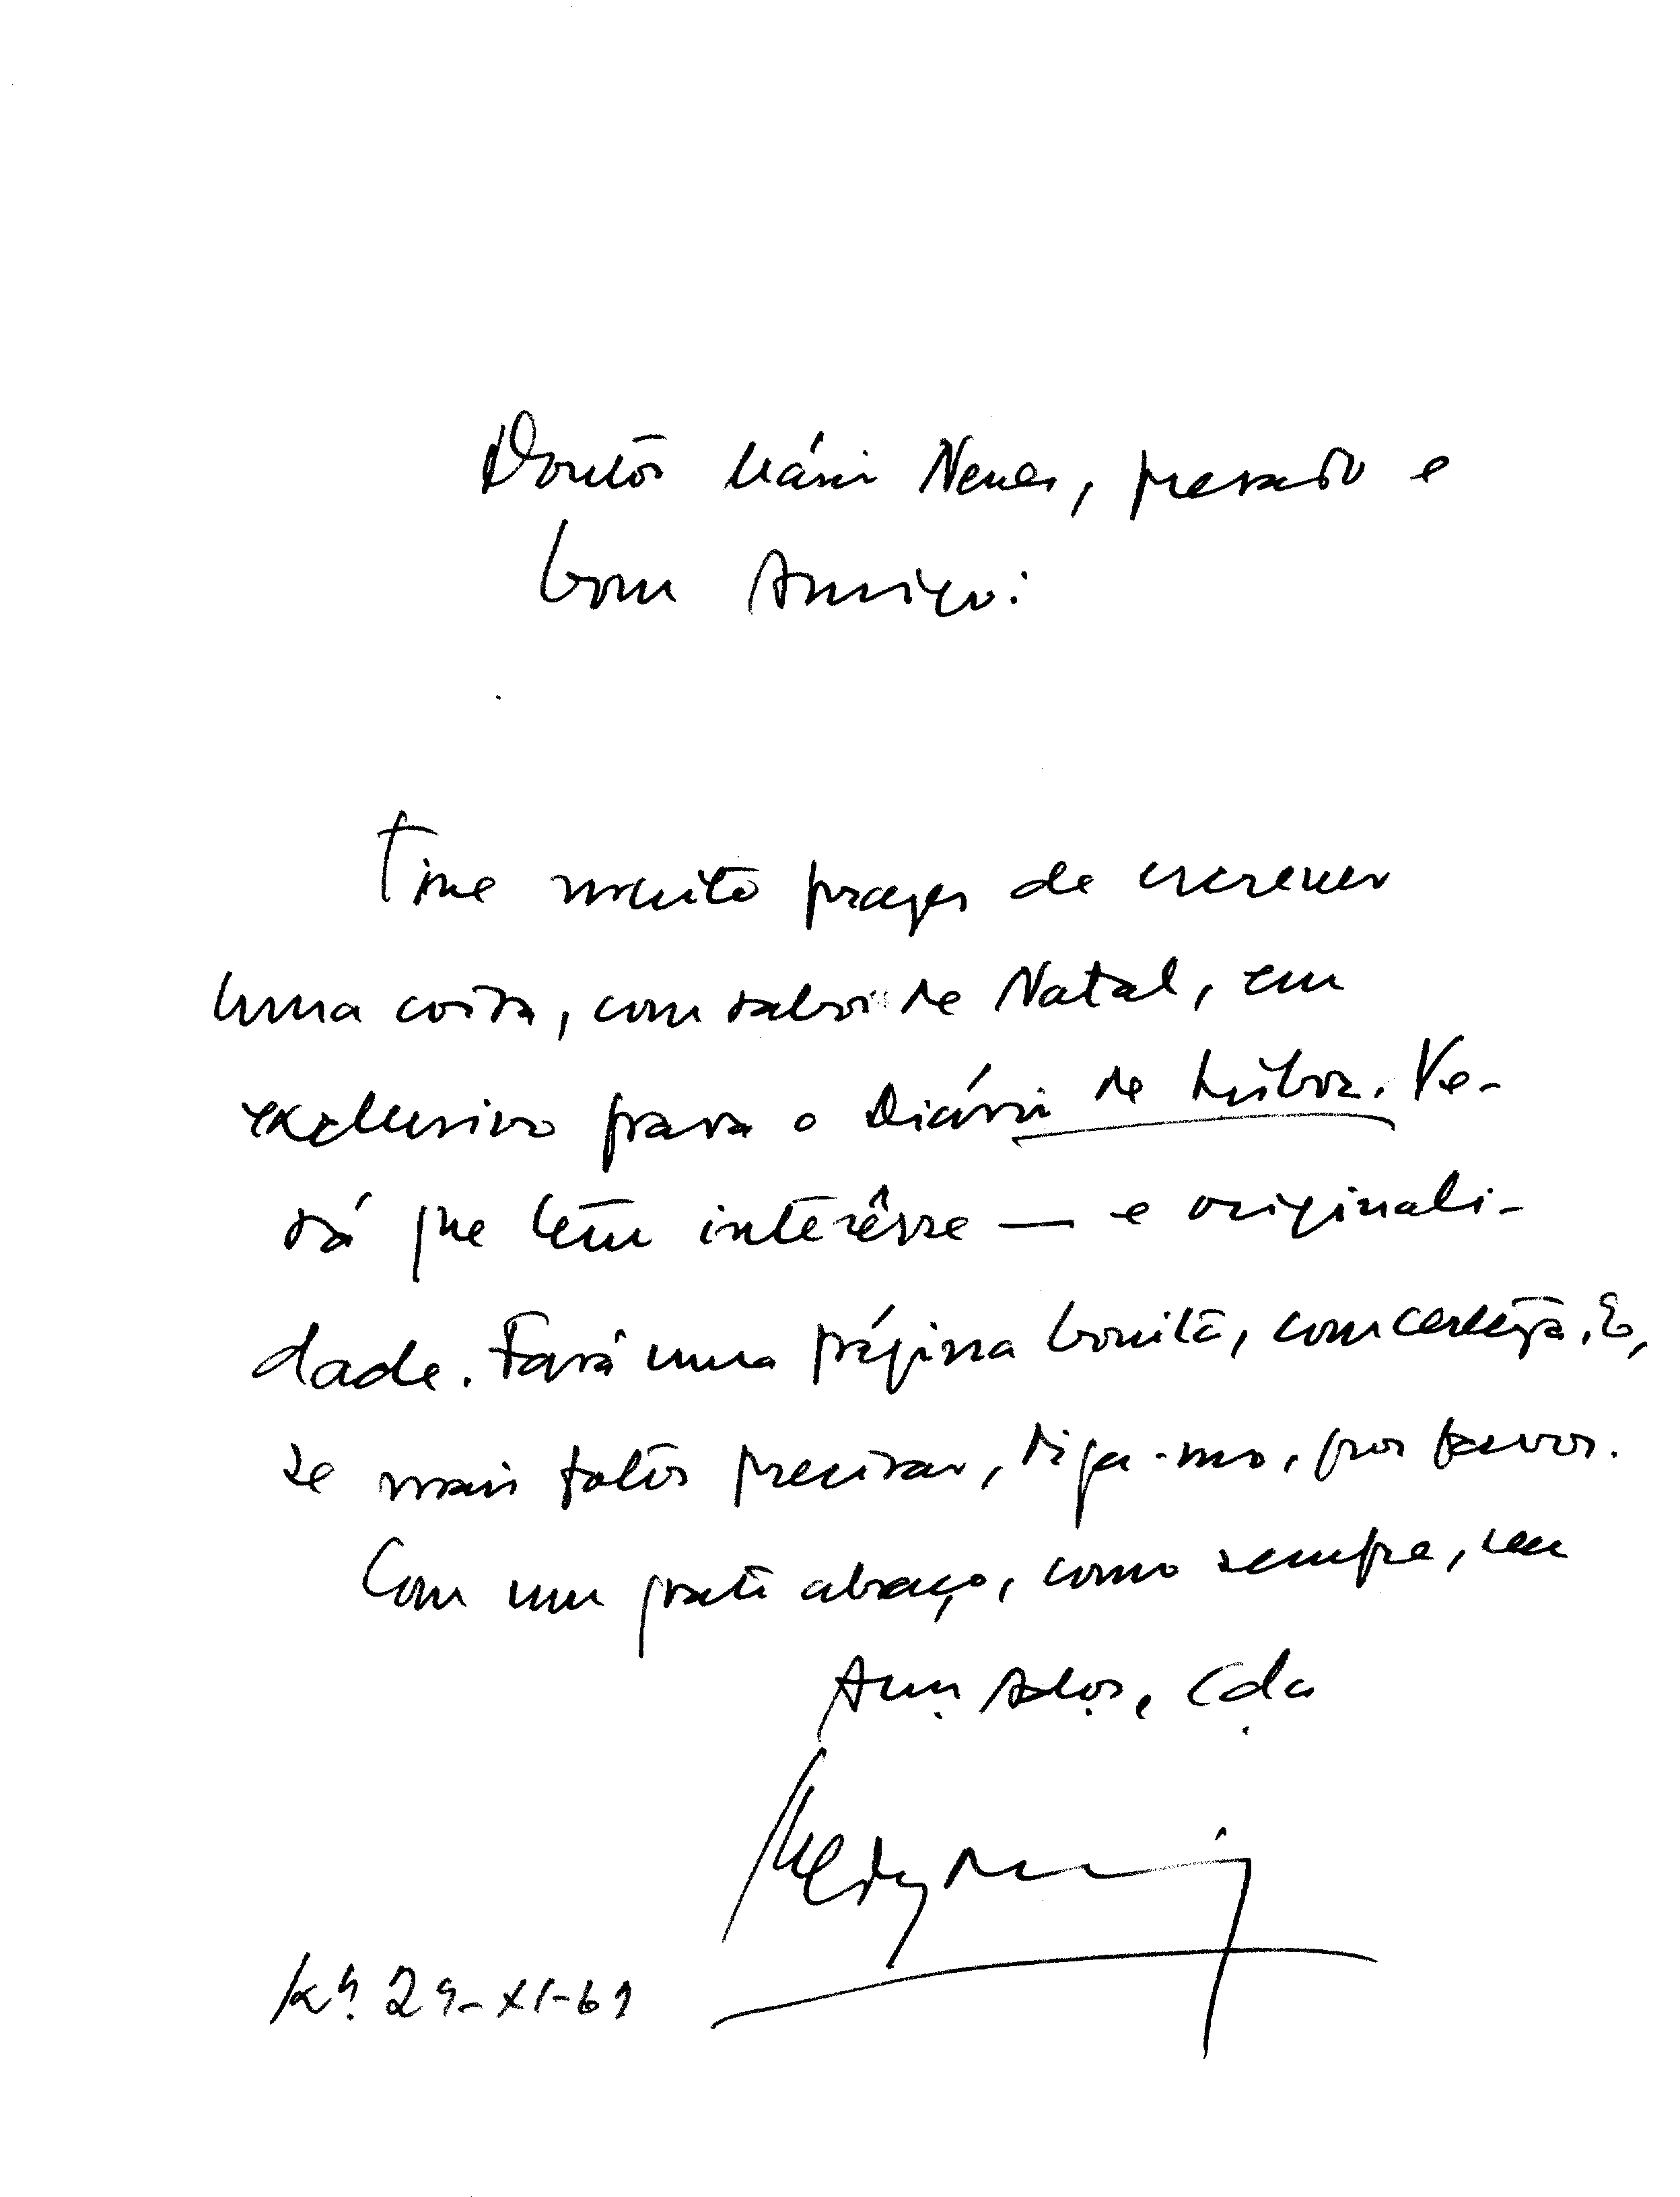 Doutor Mário Neves, presado e
bom Amigo:
Tive muito prazer de escrever
uma coisa, com sabor de Natal, em
exclusivo para o Diário de Lisboa. Ve-
rá que tem interêsse — e originali-
dade. Fará uma página bonita, com certeza. E,
se mais fotos precisar, diga-mo, por favor.
Com um grato abraço, como sempre, seu
Am. Ador. e
24-XI-61